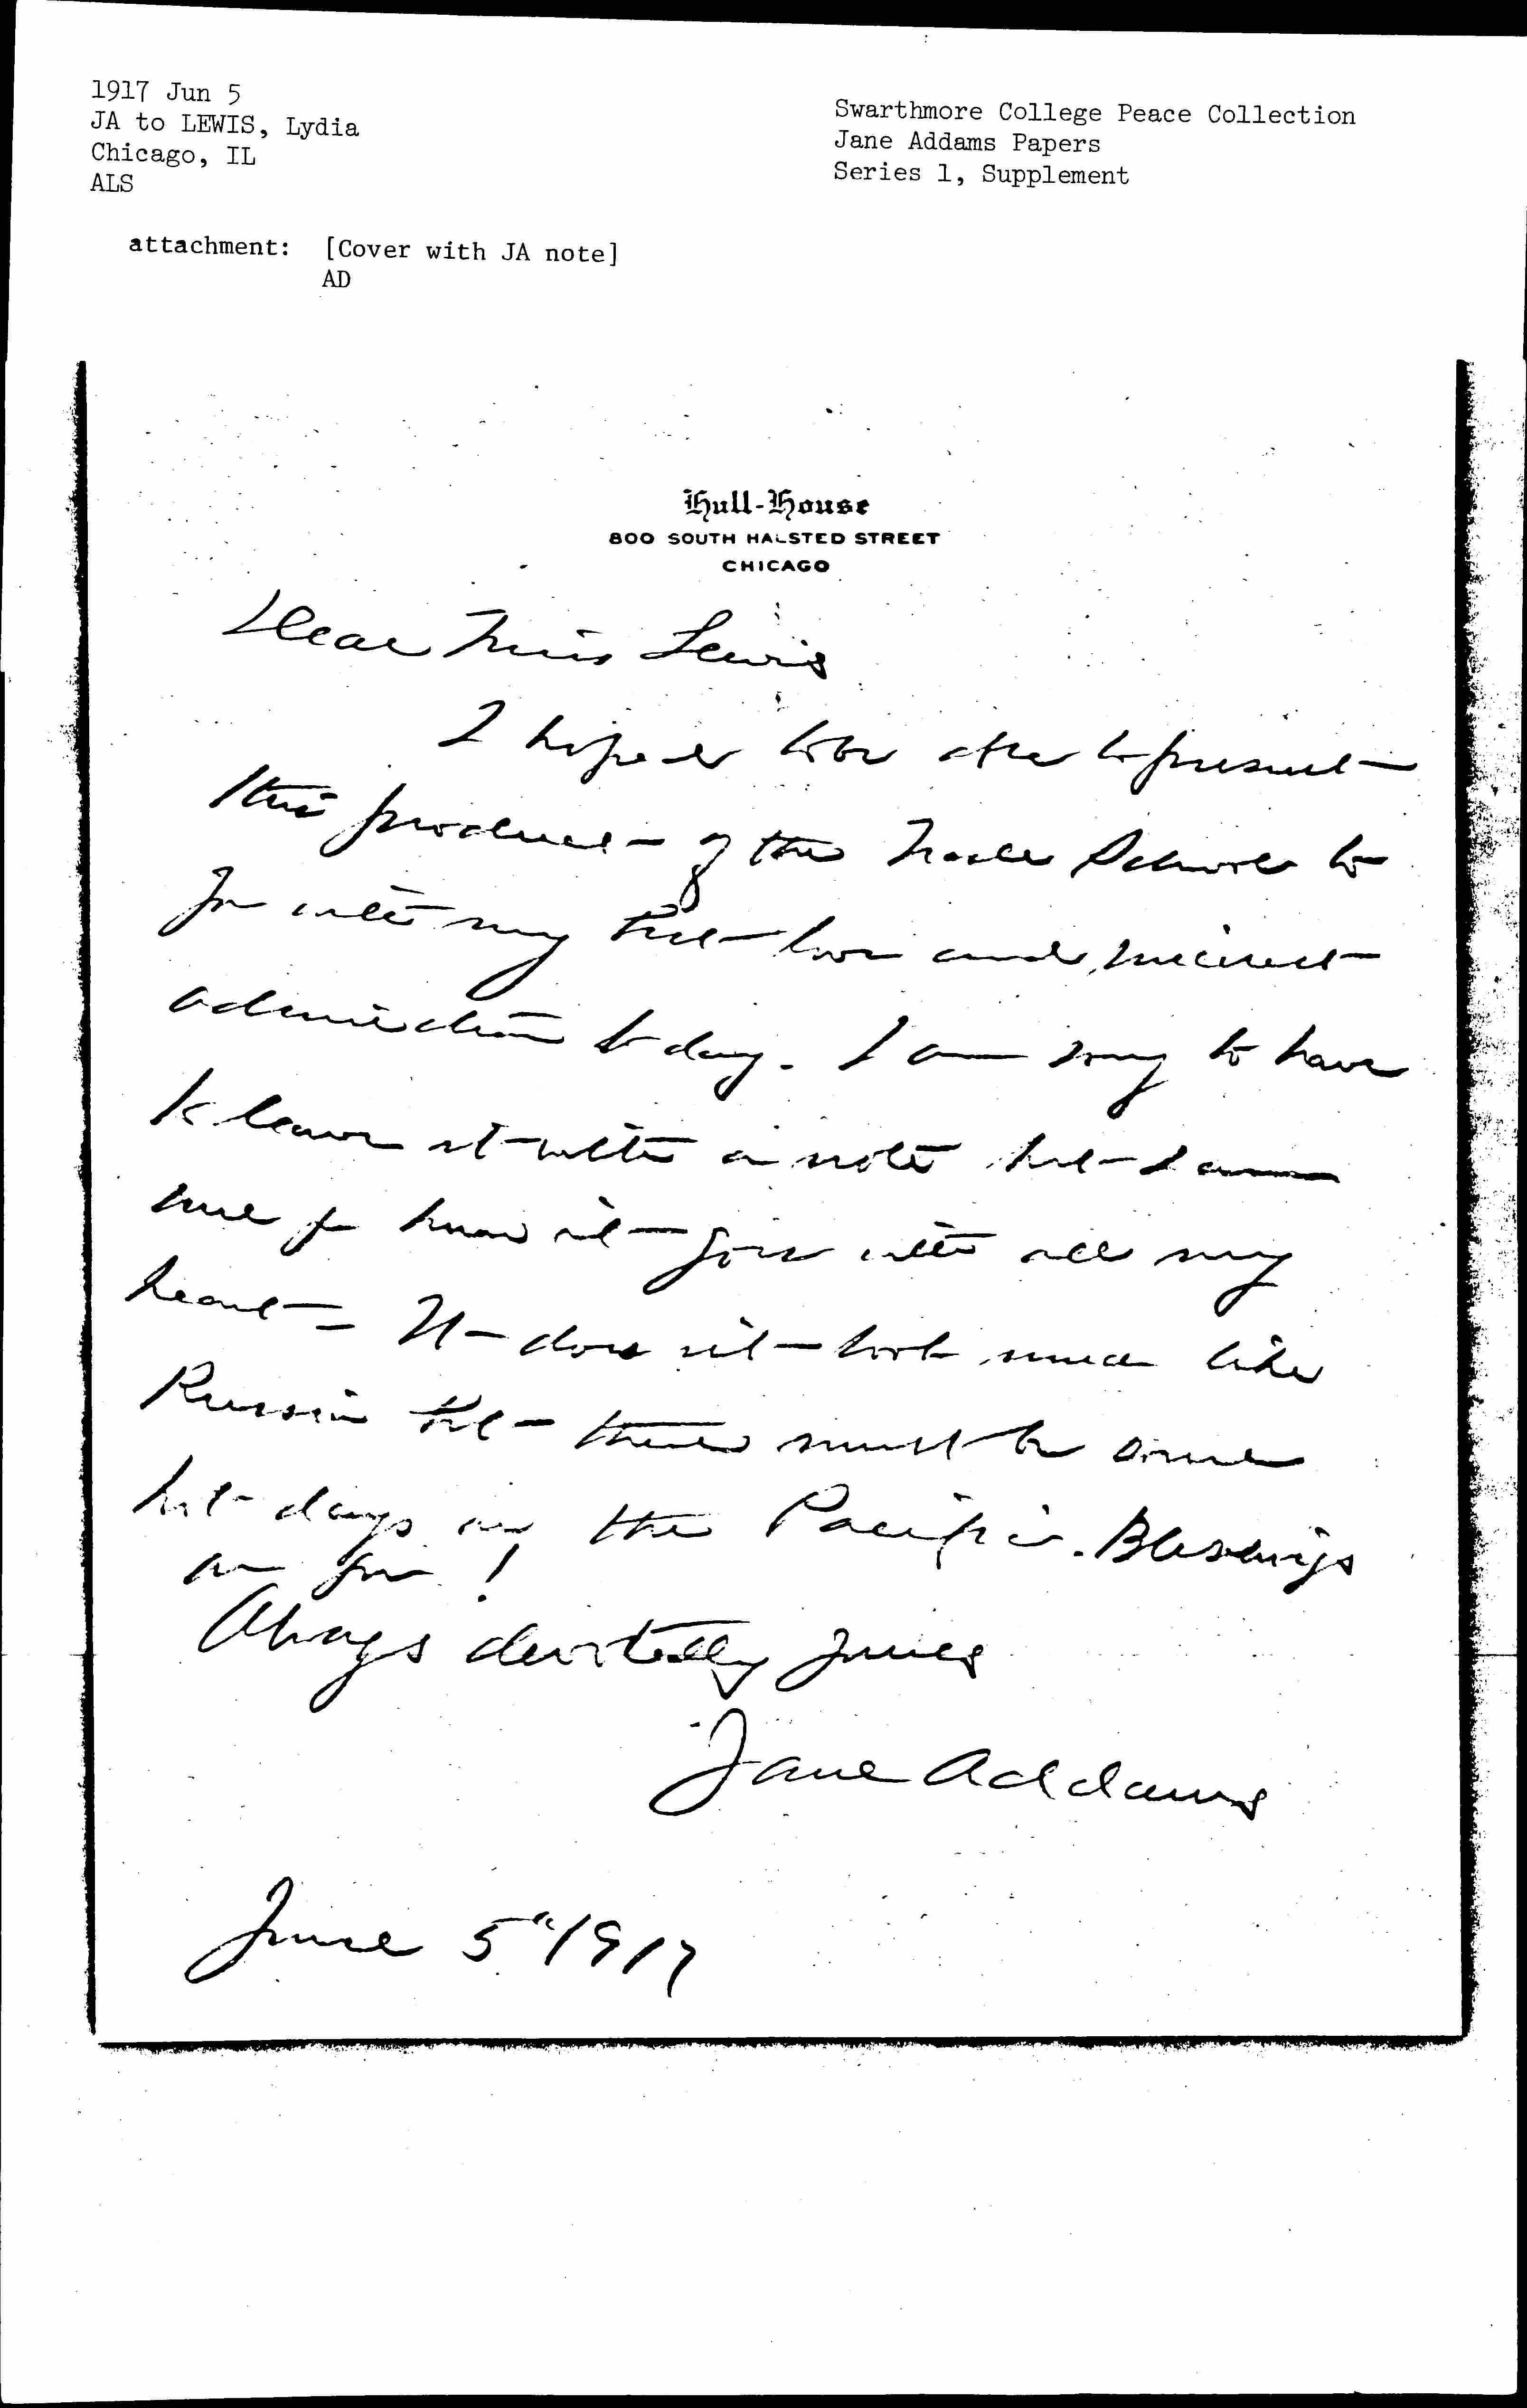 1917 Jun 5
JA to LEWIS, Lydia
Chicago, IL
ALS
attachment: [Cover with JA note]
AD
Swarthmore College Peace Collection
Jane Addams Papers
Series 1, Supplement
Hull-House
800 SOUTH HALSTED STREET
CHICAGO
Dear Miss Lewis
I hoped to be able to present
this product of the Trade School to
you with my best love and sincerest
admiration to day. I am sorry to have
to leave it with a note but I am
sure you know it goes with all my
heart - It does not look much like
Russia but there must be some
hot days on the Pacific. Blessings
on you!
Always devotedly yours
Jane Addams
June 5" 1917